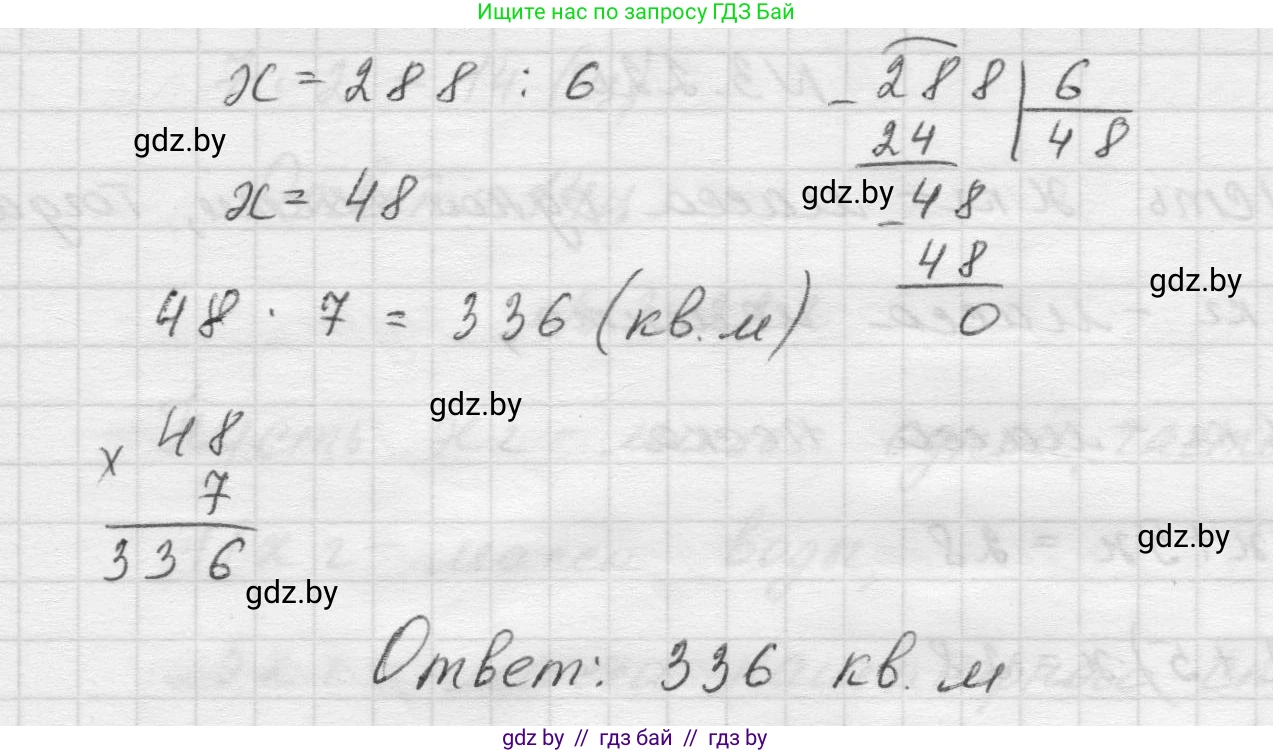 Ищите нас по запросу ГДЗ Бай
x = 288 : 6
- 288 | 6
gdz.by
24 48
x = 48
gdz.by
- 48
48
gdz.by
0
48 · 7 = 336 (кв. м)
gdz.by
x 48
7
336
gdz.by
gdz.by
Ответ: 336 кв. м
gdz.by // гдз бай // гдз by